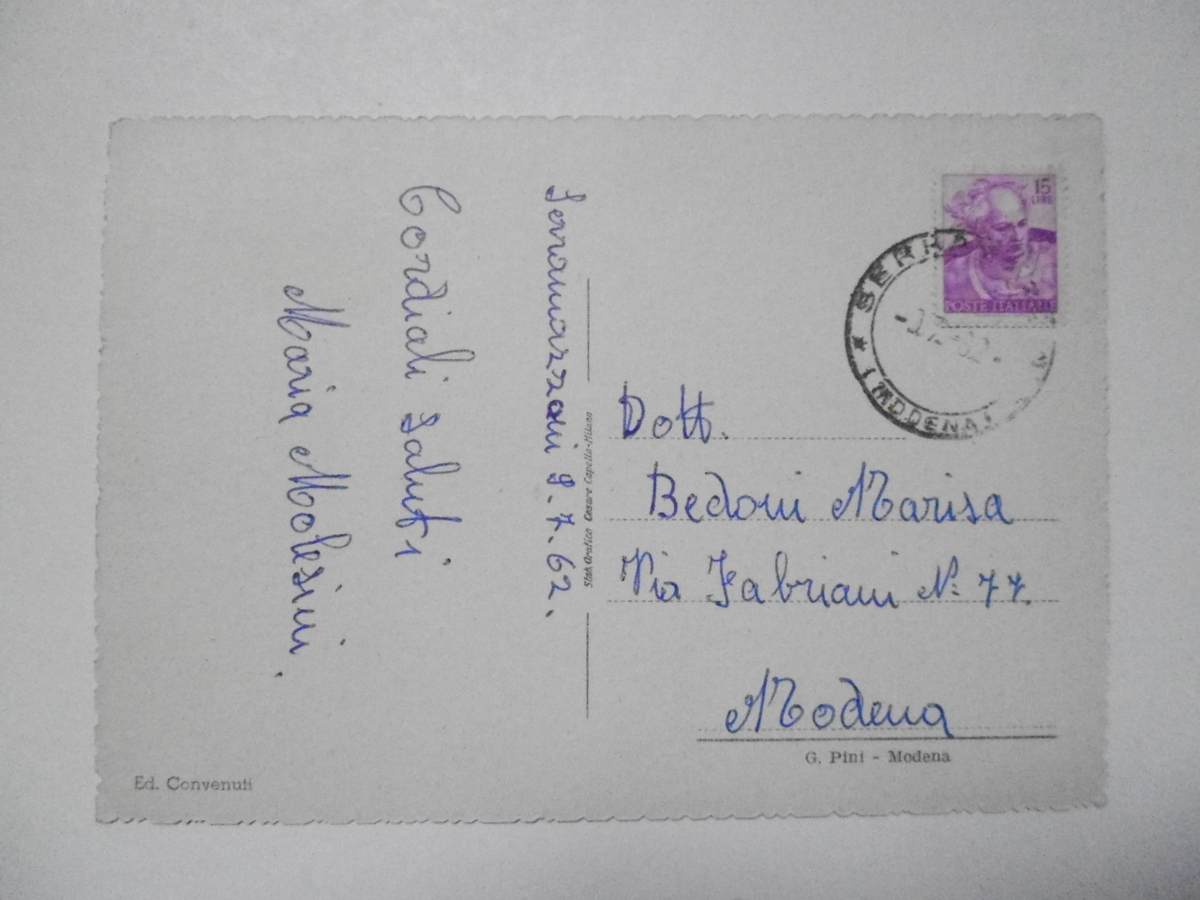 Serramazzoni 9.7.62.
Cordiali Saluti
Maria Molesini.
Ed. Convenuti
Stab. Grafico Cesare Capello-Milano
15
LIRE
POSTE ITALIANE
SERRA
(MODENA)
Dott.
Bedoni Marisa
Via Fabriani N: 77.
Modena
G. Pini - Modena